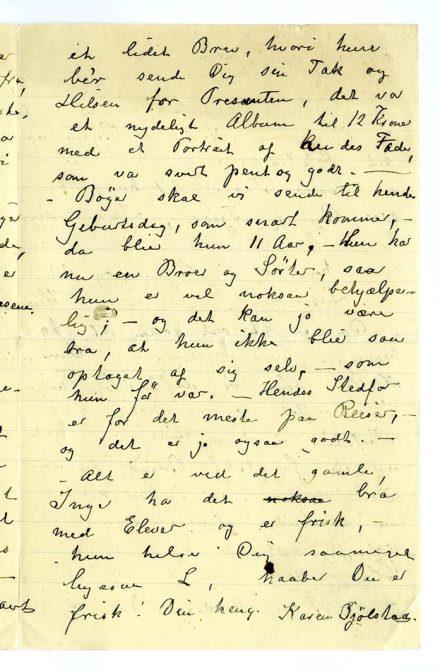 et lidet Brev, hvori hun
bér sende Dig sin Tak og
Hilsen for Presenten, det va
et nydeligt Album til 12 Kroner
med et Portrait af hendes Fader,
som va svert pent og godt. —
- Bøger skal vi sende til hendes
Geburtsdag, som snart kommer, -
da blir hun 11 Aar, - Hun har
nu en Broer og Søster, saa
hun er vel noksaa behjælpe-
lig, - og det kan jo være
bra, at hun ikke blir saa
optaget af sig selv, - som
hun før var. - Hendes Stedfar
er for det meste paa Reiser, -
og det er jo ogsaa godt. -
- Alt er ved det gamle,
Inga ha det noksaa bra
med Elever og er frisk, -
hun hilse Dig saameget
ligesaa L, haaber Du er
frisk! Din heng. Karen Bjølstad.